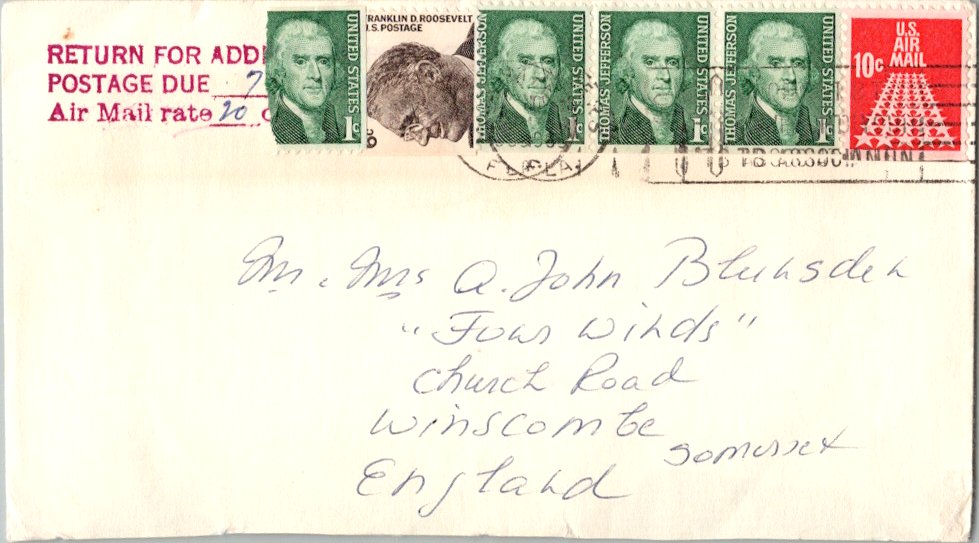 RETURN FOR ADD
POSTAGE DUE 7
Air Mail rate 20
UNITED STATES
1c
FRANKLIN D. ROOSEVELT
U.S. POSTAGE
6c
THOMAS JEFFERSON
UNITED STATES
1c
THOMAS JEFFERSON
UNITED STATES
1c
THOMAS JEFFERSON
UNITED STATES
1c
U.S.
AIR
MAIL
10c
FLA
Mr. Mrs A. John Blunsden
"Four Winds"
Church Road
Winscombe
Somerset
England